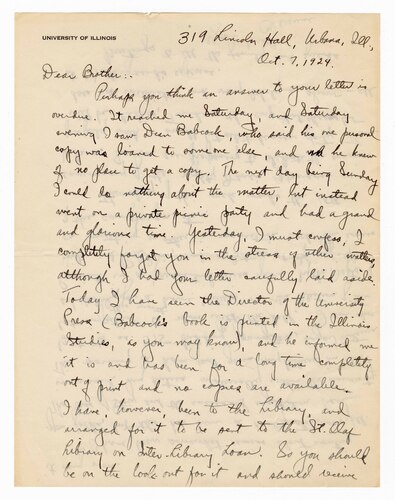 UNIVERSITY OF ILLINOIS
319 Lincoln Hall, Urbana, Ill,
Oct. 7, 1924.
Dear Brother:.
Perhaps you think an answer to your letter is
overdue. It reached me Saturday, and Saturday
evening I saw Dean Babcock, who said his one personal
copy was loaned to someone else, and he knew
of no place to get a copy. The next day being Sunday
I could do nothing about the matter, but instead
went on a private picnic party and had a grand
and glorious time. Yesterday, I must confess, I
completely forgot you in the stress of other matters,
although I had your letter carefully laid aside.
Today I have seen the Director of the University
Press (Babcock's book is printed in the Illinois
Studies, as you may know), and he informed me
it is and has been for a long time completely
out of print and no copies are available.
I have, however, been to the Library, and
arranged for it to be sent to the St. Olaf
Library on Inter-Library Loan. So you should
be on the look out for it and should receive